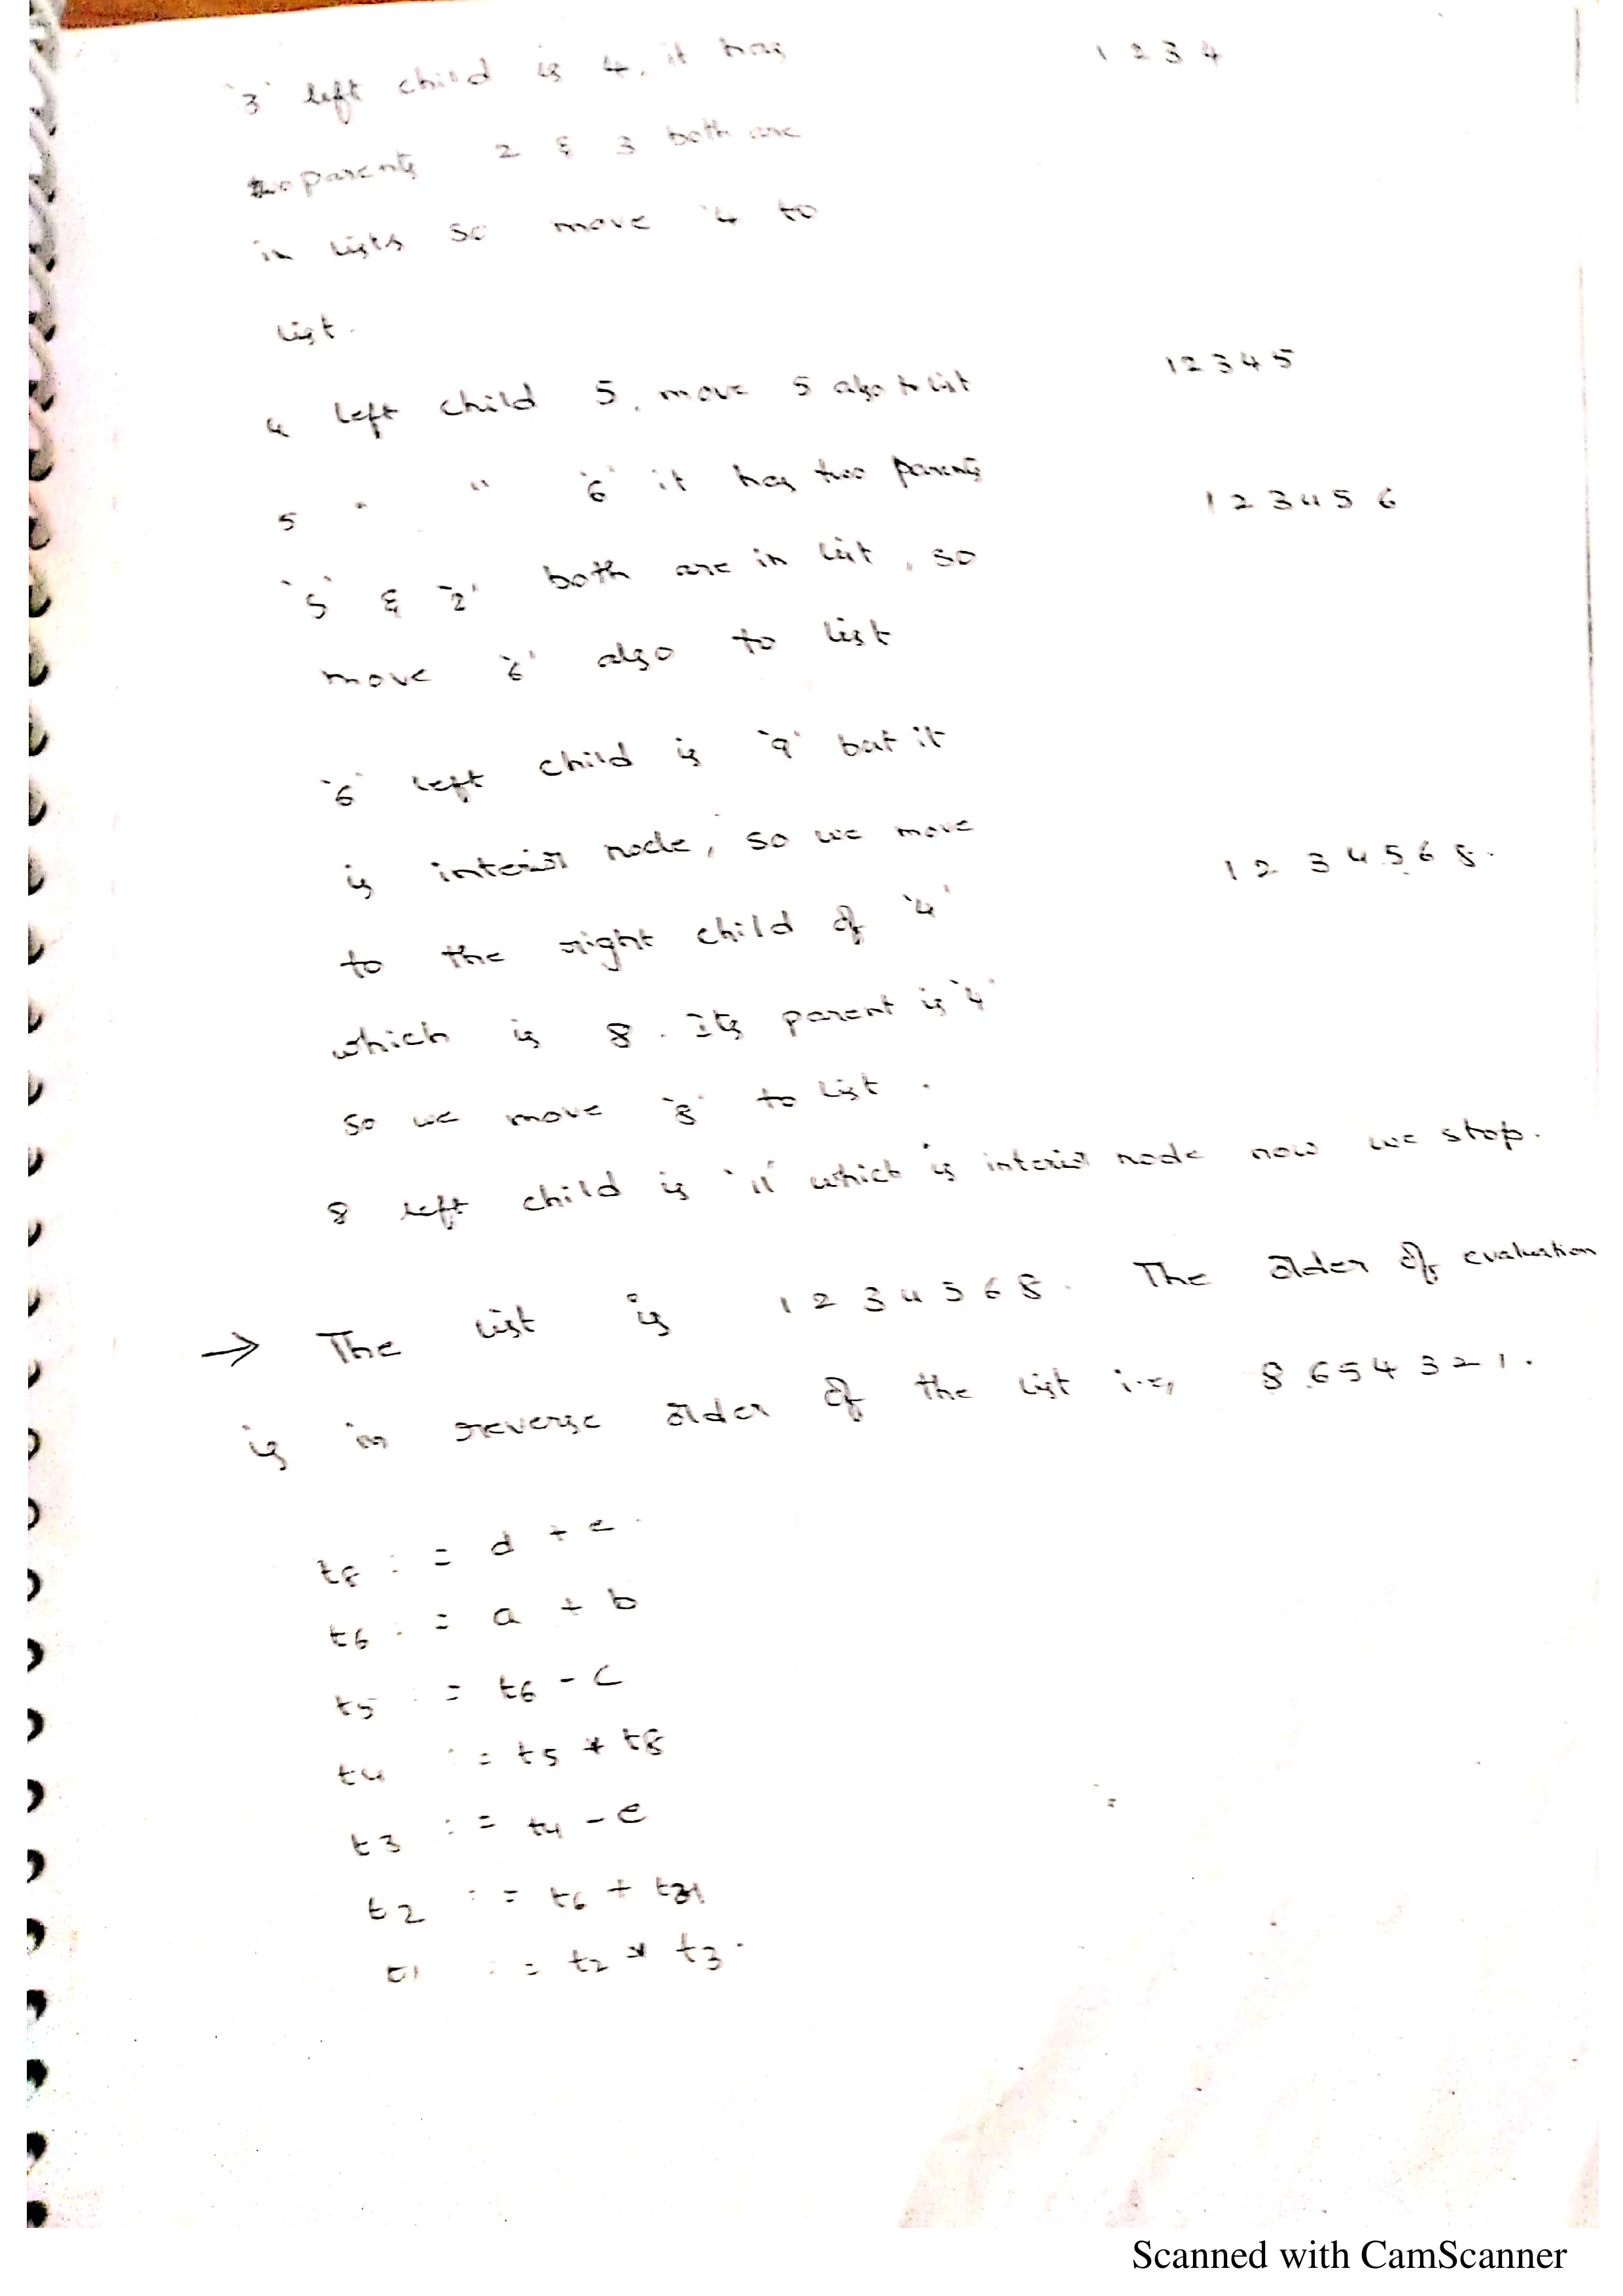 '3' left child is 4, it has 1 2 3 4
two parents 2 & 3 both are
in lists so move '4 to
list.
4 left child 5, move 5 also to list 1 2 3 4 5
5 " " '6' it has two parents 1 2 3 4 5 6
'5' & '2' both are in list, so
move '6' also to list
'6' left child is '9' but it
is interior node, so we move 1 2 3 4 5 6 8.
to the right child of '4'
which is 8. Its parent is '4'
so we move '8' to list.
8 left child is '11' which is interior node now we stop.
→ The list is 1 2 3 4 5 6 8. The order of evaluation
is in reverse order of the list i.e, 8 6 5 4 3 2 1.
t8 := d + e.
t6 := a + b
t5 := t6 - c
t4 := t5 * t8
t3 := t4 - e
t2 := t6 +
t1 := t2 * t3.
Scanned with CamScanner